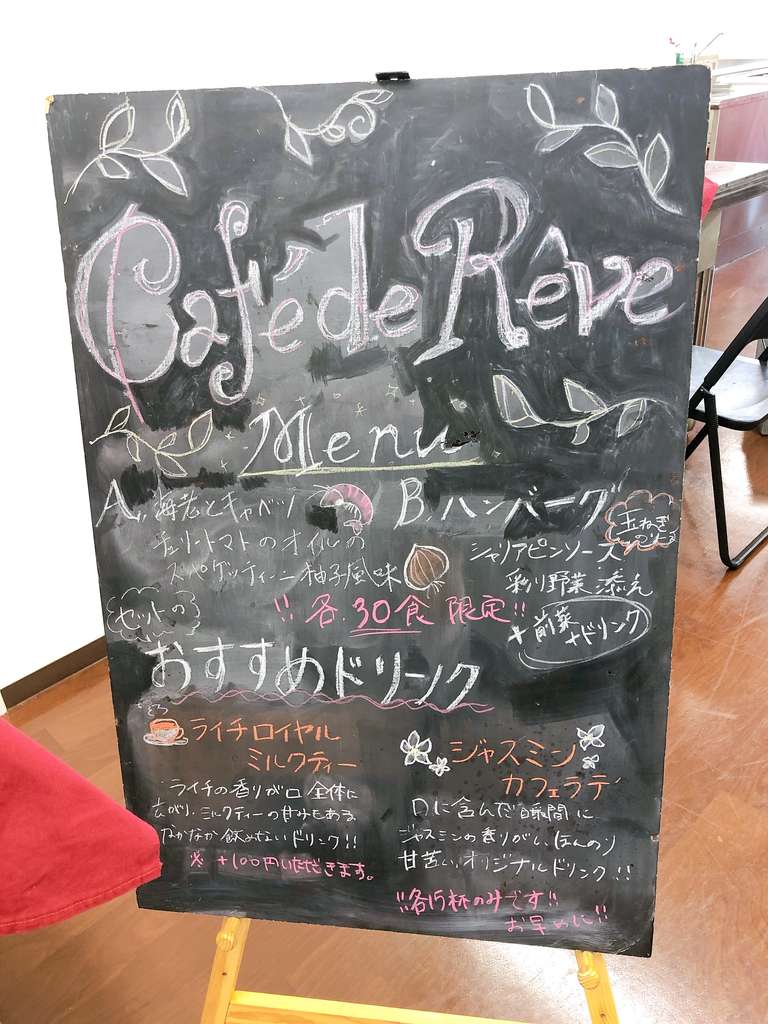 Café de Rêve
Menu
A, 海老とキャベツ
チェリートマトのオイルの
スペゲッティーニ 柚子風味
B, ハンバーグ
シャリアピンソース
玉ねぎ
ソース
彩り野菜 添え
+前菜
+ドリンク
!! 各.30食 限定!!
セットの
おすすめドリンク
ライチロイヤル
ミルクティー
ライチの香りが口全体に
広がり、ミルクティーの甘みもある
なかなか飲めないドリンク!!
※ +100円いただきます。
ジャスミン
カフェラテ
口に含んだ瞬間に
ジャスミンの香りがし、ほんのり
甘苦い、オリジナルドリンク!!
!!各15杯のみです!!
お早めに!!